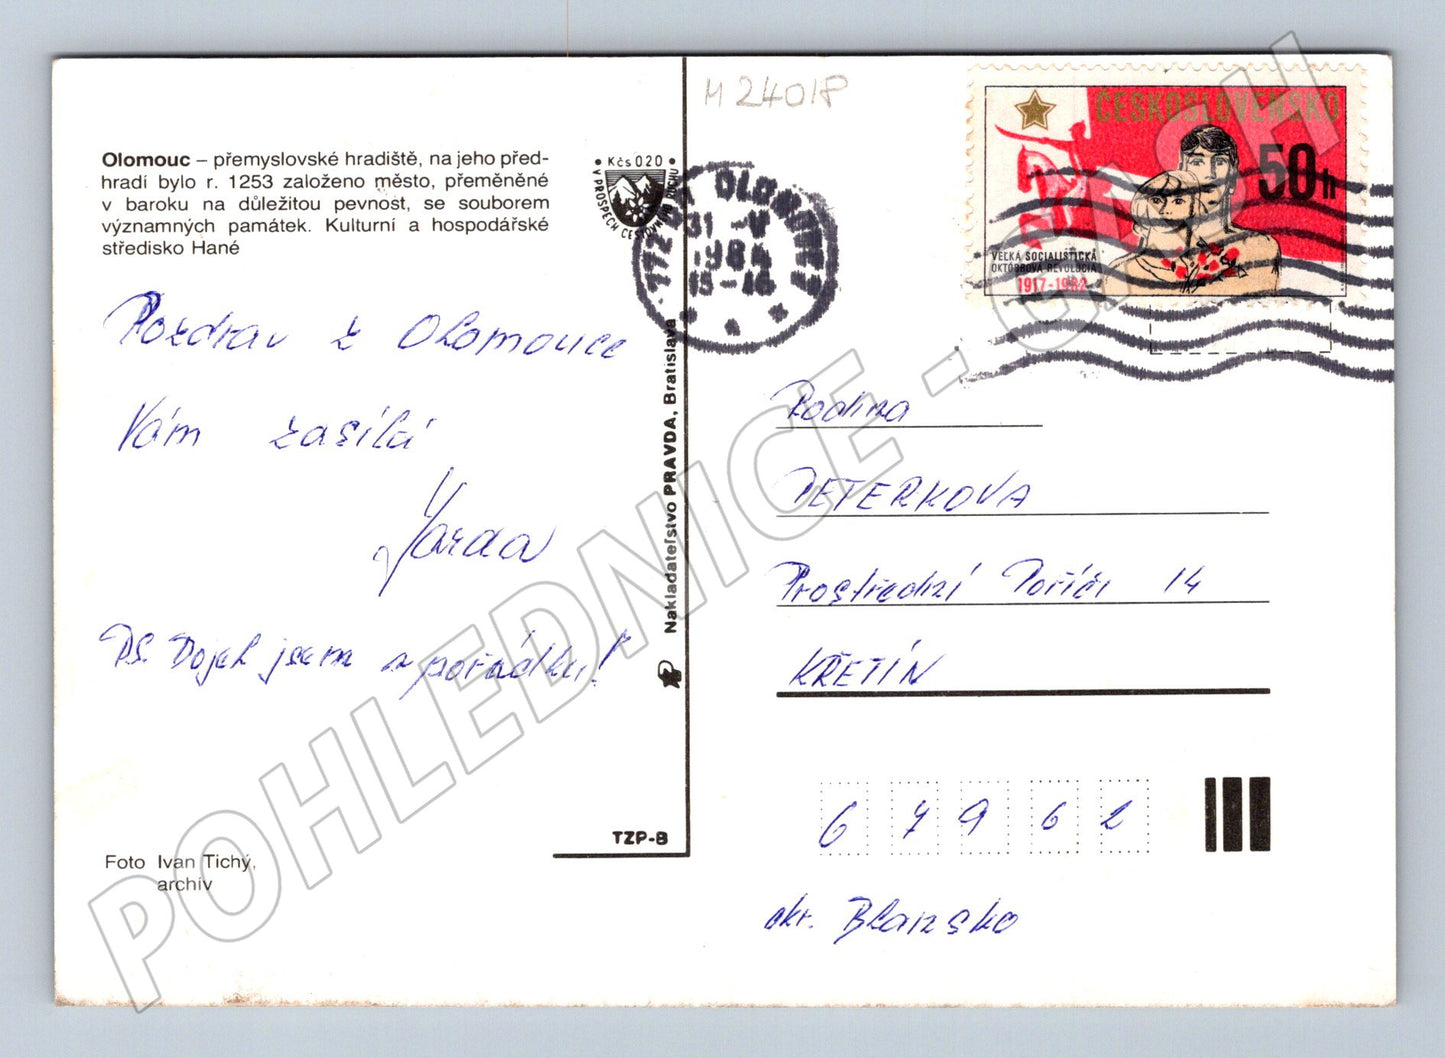 M 24018
Olomouc – přemyslovské hradiště, na jeho před-
hradí bylo r. 1253 založeno město, přeměněné
v baroku na důležitou pevnost, se souborem
významných památek. Kulturní a hospodářské
středisko Hané
• Kčs 020 •
V PROSPĚCH CESTOVNÍHO RUCHU
772 00 OLOMOUC
31 -V
1984
15-16
ČESKOSLOVENSKO
50 h
VEĽKÁ SOCIALISTICKÁ
OKTÓBROVÁ REVOLÚCIA
1917-1982
Pozdrav z Olomouce
Vám zasílá
Jarda
PS. Dojel jsem v pořádku!
Nakladateľstvo PRAVDA, Bratislava
TZP-B
Foto Ivan Tichý,
archív
Rodina
PETERKOVA
Prostřední Poříčí 14
KŘETÍN
6 7 9 6 2
okr. Blansko
POHLEDNICE - CASH